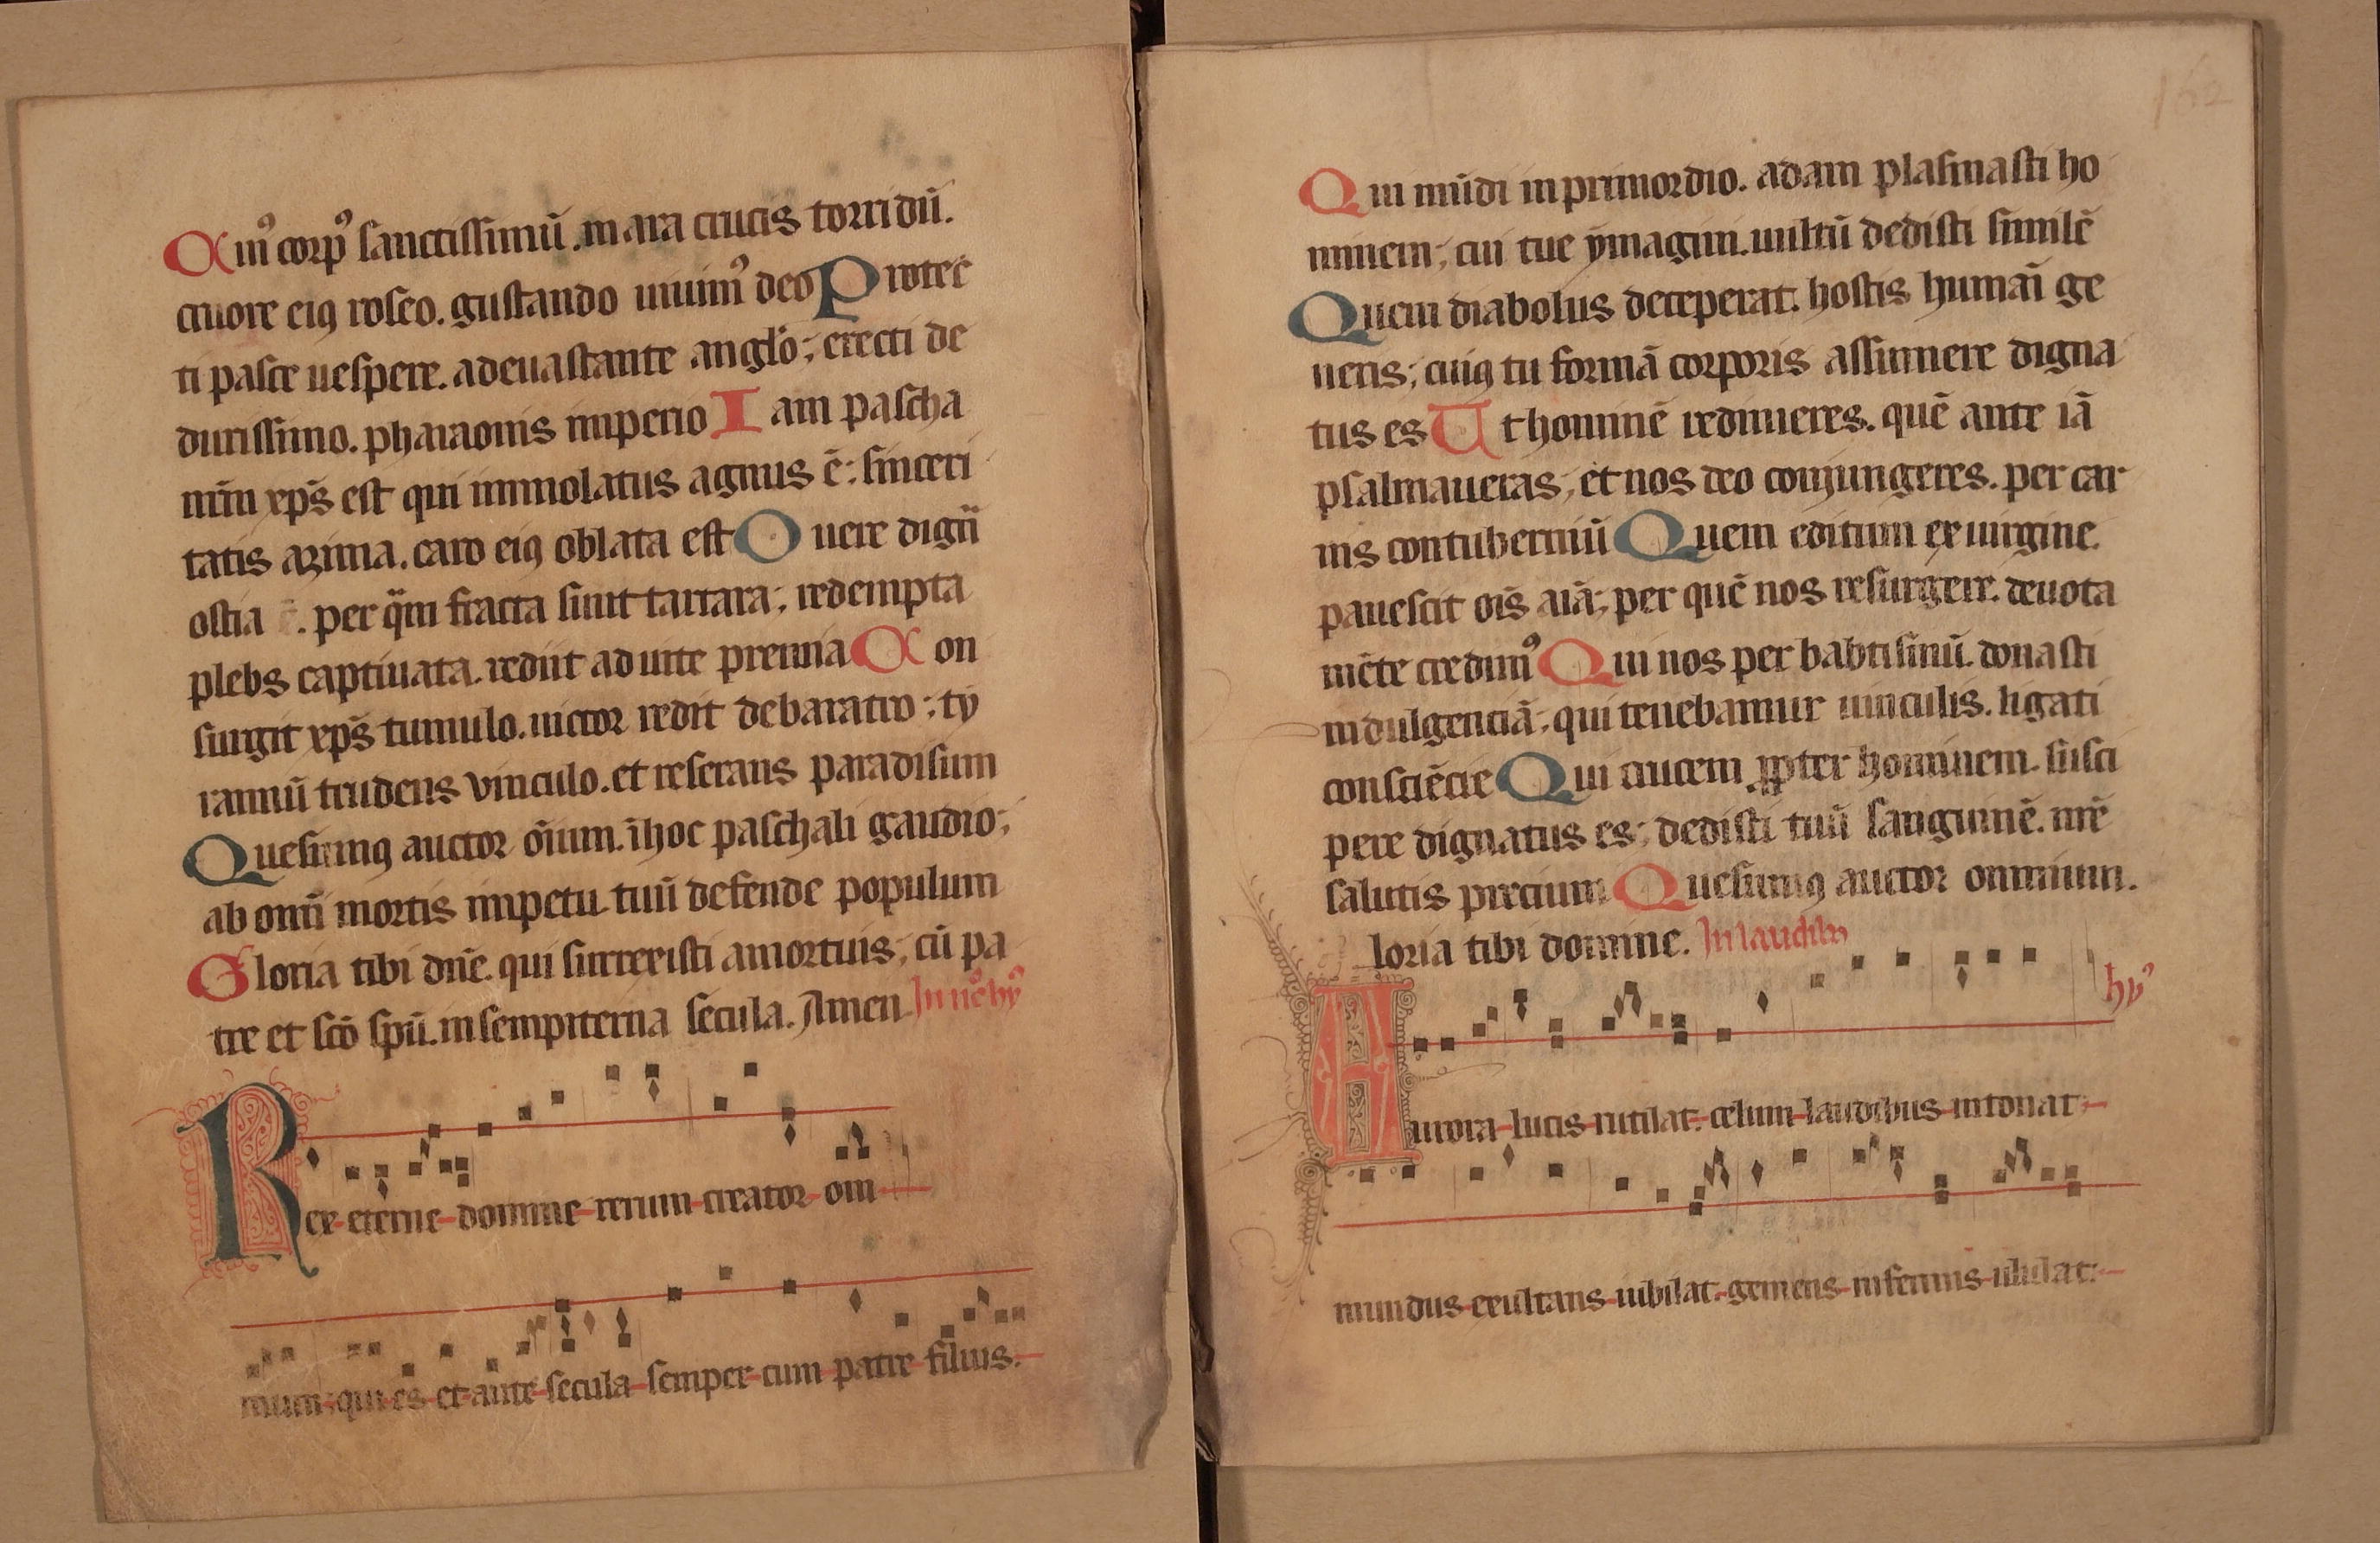 Cui9 corp9 sanctissimū. in ara crucis torridū.
cruore eiꝰ roseo. gustando uiuim9 deo Protec
ti pasce uespere. a deuastante anglo; erecti de
durissimo. pharaonis imperio Iam pascha
nrm xp̄s est qui immolatus agnus ē; sinceri
tatis azima. caro eiꝰ oblata est O uere dign
ostia ē. per q̄m fracta sunt tartara; redempta
plebs captiuata. rediit ad uite premia Con
surgit xp̄s tumulo. uictor redit de baratro; ty
rannū trudens vinculo. et reserans paradisum
Quesumꝰ auctor ōium. ī hoc paschali gaudio;
ab omī mortis impetu tuū defende populum
Gloria tibi dn̄e. qui surrexisti a mortuis; cū pa
tre et sc̄o sp̄u. in sempiterna secula. Amen. In noc hy9
Rex eterne domine rerum creator om
nium; qui es et ante secula semper cum patre filius.
162
Qui mūdi in primordio. adam plasmasti ho
minem; cui tue ymagini. uultū dedisti similē
Quem diabolus deceperat. hostis humāi ge
neris; cuiꝰ tu formā corporis assumere digna
tus es Ut hominē redimeres. quē ante iā
psalmaueras; et nos deo coniungeres. per car
nis contuberniū Quem editum ex uirgine.
pauescit oīs aīa; per quē nos resurgere. deuota
mēte credim9 Qui nos per babtismū. donasti
indulgenciā; qui tenebamur uinculis. ligati
consciēcie Qui crucem ꝓpter hominem. susci
pere dignatus es; dedisti tuū sanguinē. nr̄e
salutis precium Quesumꝰ auctor omnium.
loria tibi domine. In laudibꝰ
hy9
Aurora lucis rutilat. celum laudibus intonat;
mundus exultans iubilat. gemens infernus ululat.